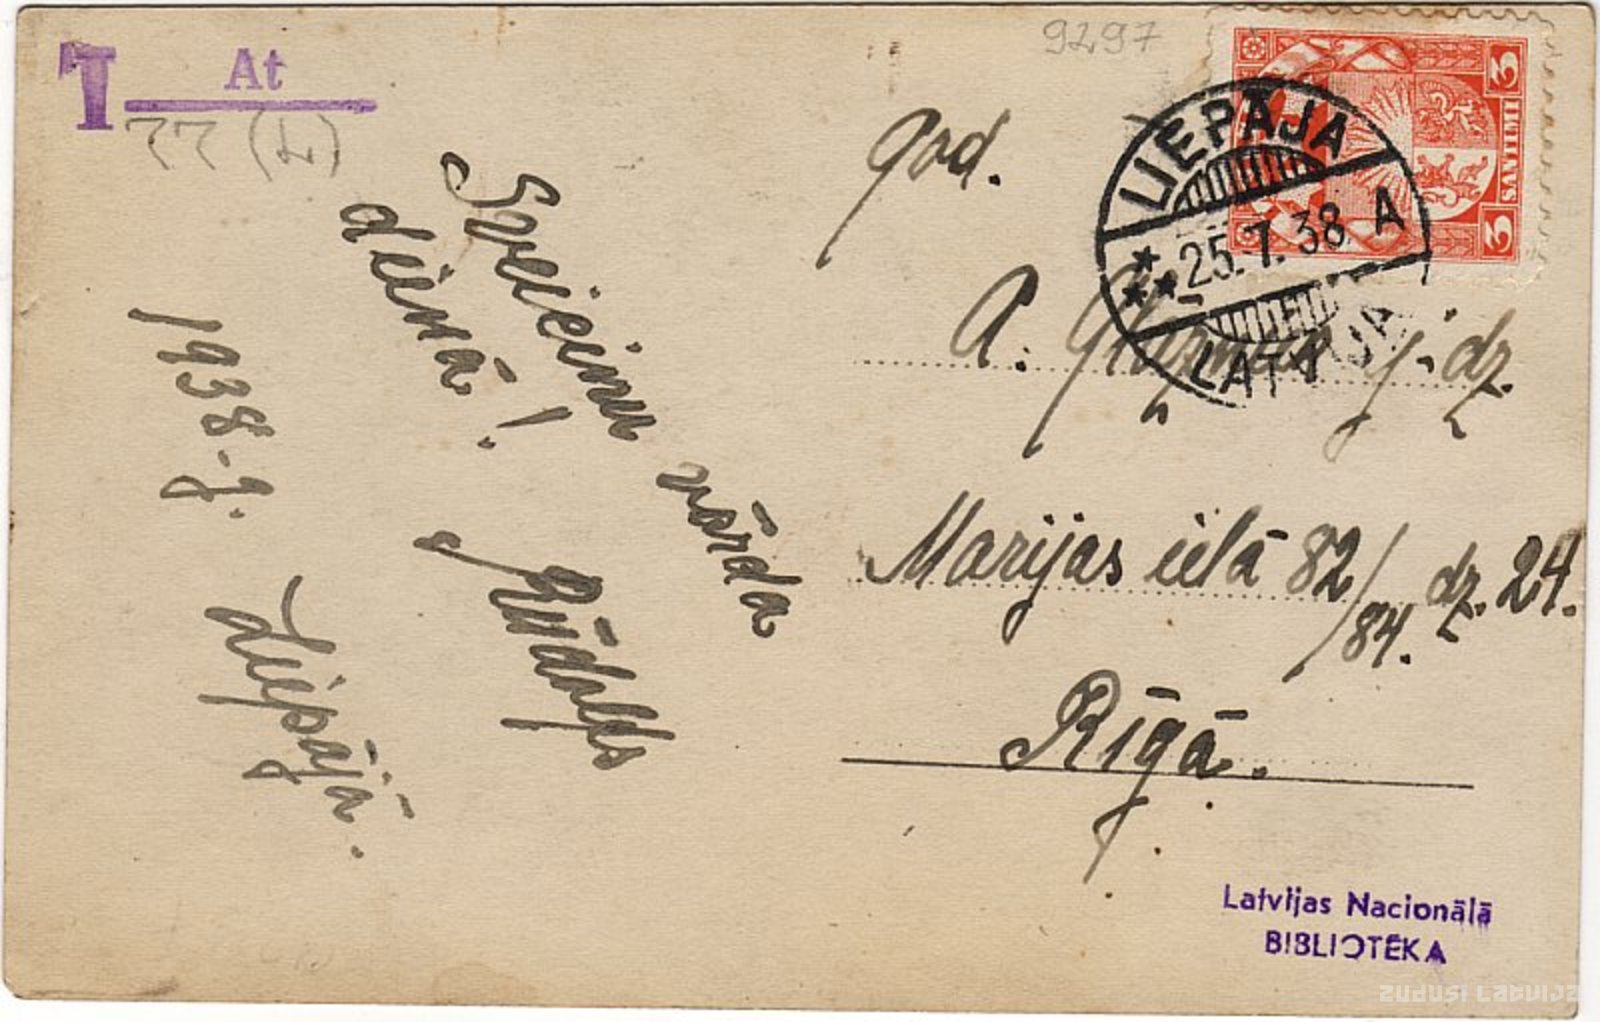 9297
T At
77 (L)
Sveicinu vārda
dienā!
Rūdolfs
1938.g.
Liepājā.
God.
A. j-dz.
Marijas ielā 82/84. dz. 24.
Rīgā.
3 SANTIMI 3
LIEPĀJA
25.7.38 A
LATVIJA
Latvijas Nacionālā
BIBLIOTĒKA
zudusi Latvija